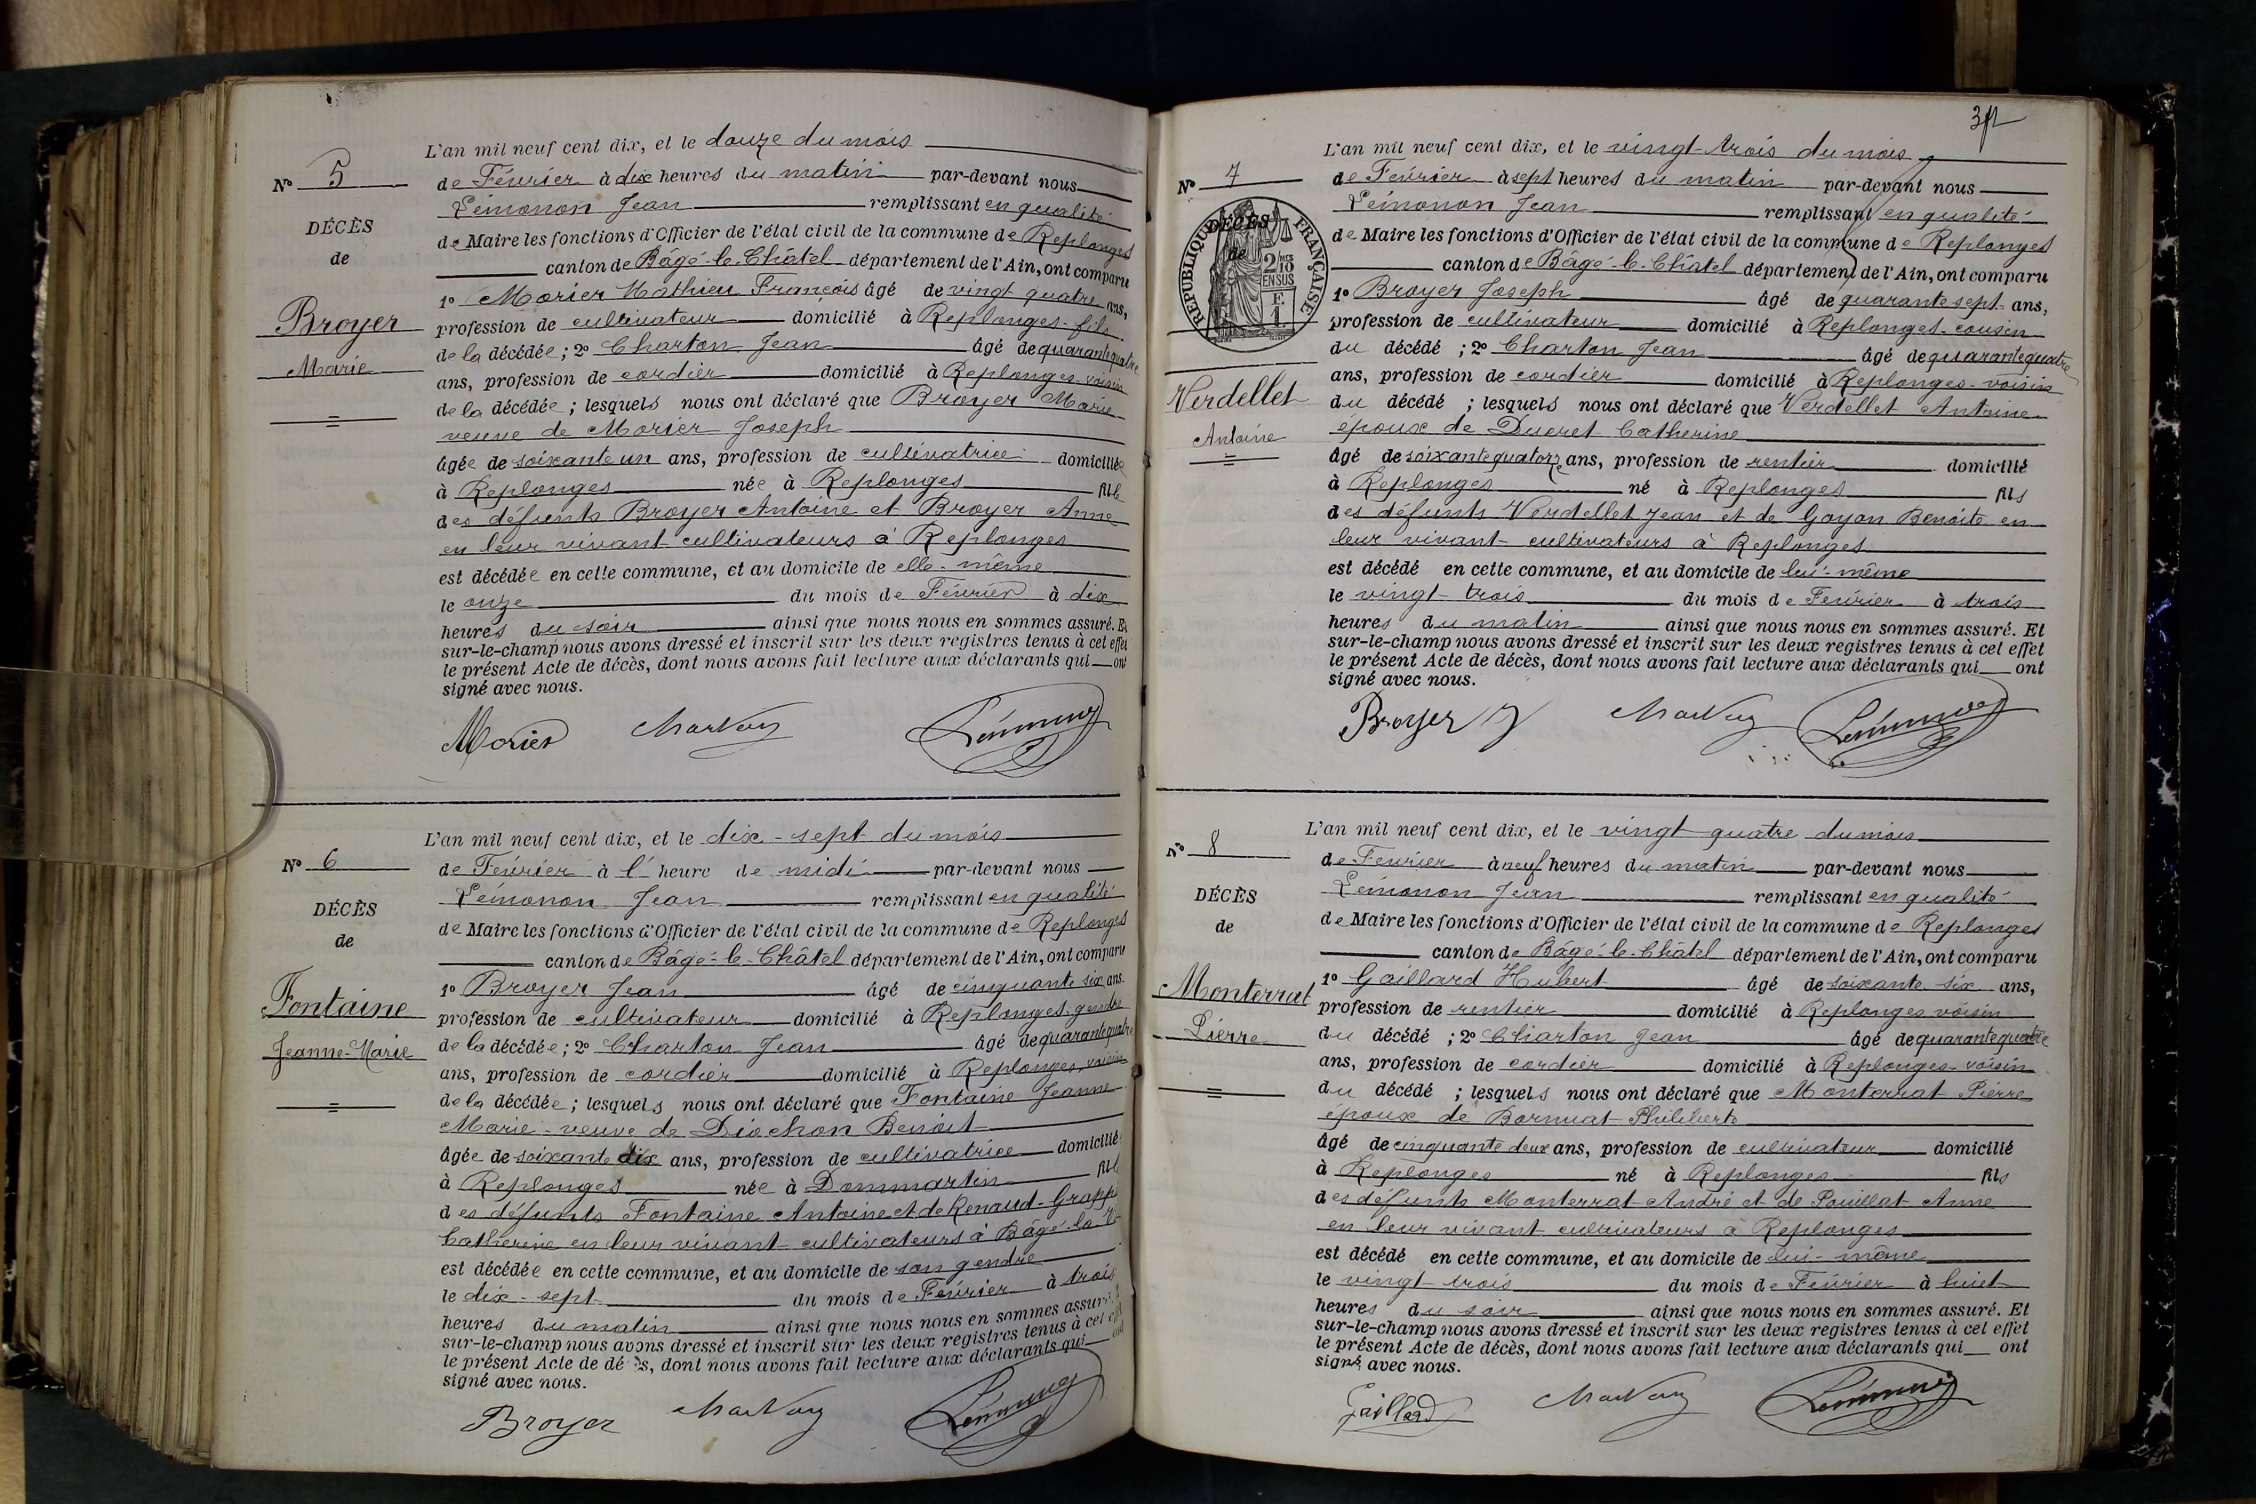 N° 5
DÉCÈS
de
Broyer
Marie
L'an mil neuf cent dix, et le douze du mois
de Février à dix heures du matin par-devant nous
Lémonon Jean remplissant en qualité
de Maire les fonctions d'Officier de l'état civil de la commune de Replonges
canton de Bâgé-le-Châtel département de l'Ain, ont comparu
1° Morier Mathieu François âgé de vingt quatre ans,
profession de cultivateur domicilié à Replonges - fils
de la décédée ; 2° Charton Jean âgé de quarante quatre
ans, profession de cordier domicilié à Replonges - voisin
de la décédée ; lesquels nous ont déclaré que Broyer Marie
veuve de Morier Joseph
âgée de soixante un ans, profession de cultivatrice domiciliée
à Replonges née à Replonges fille
des défunts Broyer Antoine et Broyer Anne
en leur vivant cultivateurs à Replonges
est décédée en cette commune, et au domicile de elle-même
le onze du mois de Février à dix
heures du soir ainsi que nous nous en sommes assuré. Et
sur-le-champ nous avons dressé et inscrit sur les deux registres tenus à cet effet
le présent Acte de décès, dont nous avons fait lecture aux déclarants qui ont
signé avec nous.
Morier Charton Lémonon
N° 6
DÉCÈS
de
Fontaine
Jeanne-Marie
L'an mil neuf cent dix, et le dix-sept du mois
de Février à l' heure de midi par-devant nous
Lémonon Jean remplissant en qualité
de Maire les fonctions d'Officier de l'état civil de la commune de Replonges
canton de Bâgé-le-Châtel département de l'Ain, ont comparu
1° Broyer Jean âgé de cinquante six ans
profession de cultivateur domicilié à Replonges - gendre
de la décédée ; 2° Charton Jean âgé de quarante quatre
ans, profession de cordier domicilié à Replonges, voisin
de la décédée ; lesquels nous ont déclaré que Fontaine Jeanne
Marie - veuve de Diochon Benoit
âgée de soixante dix ans, profession de cultivatrice domiciliée
à Replonges née à Dommartin fille
des défunts Fontaine Antoine et de Renaud-Grappe
Catherine en leur vivant cultivateurs à Bâgé-la-V
est décédée en cette commune, et au domicile de son gendre
le dix-sept du mois de Février à trois
heures du matin ainsi que nous nous en sommes assuré
sur-le-champ nous avons dressé et inscrit sur les deux registres tenus à cet effet
le présent Acte de décès, dont nous avons fait lecture aux déclarants qui ont
signé avec nous.
Broyer Charton Lémonon
N° 7
DÉCÈS
de
RÉPUBLIQUE FRANÇAISE
2/10
EN SUS
Verdellet
Antoine
L'an mil neuf cent dix, et le vingt-trois du mois
de Février à sept heures du matin par-devant nous
Lémonon Jean remplissant en qualité
de Maire les fonctions d'Officier de l'état civil de la commune de Replonges
canton de Bâgé-le-Châtel département de l'Ain, ont comparu
1° Broyer Joseph âgé de quarante sept ans,
profession de cultivateur domicilié à Replonges - cousin
du décédé ; 2° Charton Jean âgé de quarante quatre
ans, profession de cordier domicilié à Replonges - voisin
du décédé ; lesquels nous ont déclaré que Verdellet Antoine
époux de Ducret Catherine
âgé de soixante quatorze ans, profession de rentier domicilié
à Replonges né à Replonges fils
des défunts Verdellet Jean et de Goyon Benoite en
leur vivant cultivateurs à Replonges
est décédé en cette commune, et au domicile de lui-même
le vingt trois du mois de Février à trois
heures du matin ainsi que nous nous en sommes assuré. Et
sur-le-champ nous avons dressé et inscrit sur les deux registres tenus à cet effet
le présent Acte de décès, dont nous avons fait lecture aux déclarants qui ont
signé avec nous.
Broyer J Charton Lémonon
N° 8
DÉCÈS
de
Monterrat
Pierre
L'an mil neuf cent dix, et le vingt quatre du mois
de Février à neuf heures du matin par-devant nous
Lémonon Jean remplissant en qualité
de Maire les fonctions d'Officier de l'état civil de la commune de Replonges
canton de Bâgé-le-Châtel département de l'Ain, ont comparu
1° Gaillard Hubert âgé de soixante six ans,
profession de rentier domicilié à Replonges voisin
du décédé ; 2° Charton Jean âgé de quarante quatre
ans, profession de cordier domicilié à Replonges - voisin
du décédé ; lesquels nous ont déclaré que Monterrat Pierre
époux de Bornuat Philiberte
âgé de cinquante deux ans, profession de cultivateur domicilié
à Replonges né à Replonges fils
des défunts Monterrat André et de Pouillat Anne
en leur vivant cultivateurs à Replonges
est décédé en cette commune, et au domicile de lui-même
le vingt trois du mois de Février à huit
heures du soir ainsi que nous nous en sommes assuré. Et
sur-le-champ nous avons dressé et inscrit sur les deux registres tenus à cet effet
le présent Acte de décès, dont nous avons fait lecture aux déclarants qui ont
signé avec nous.
Gaillard Charton Lémonon